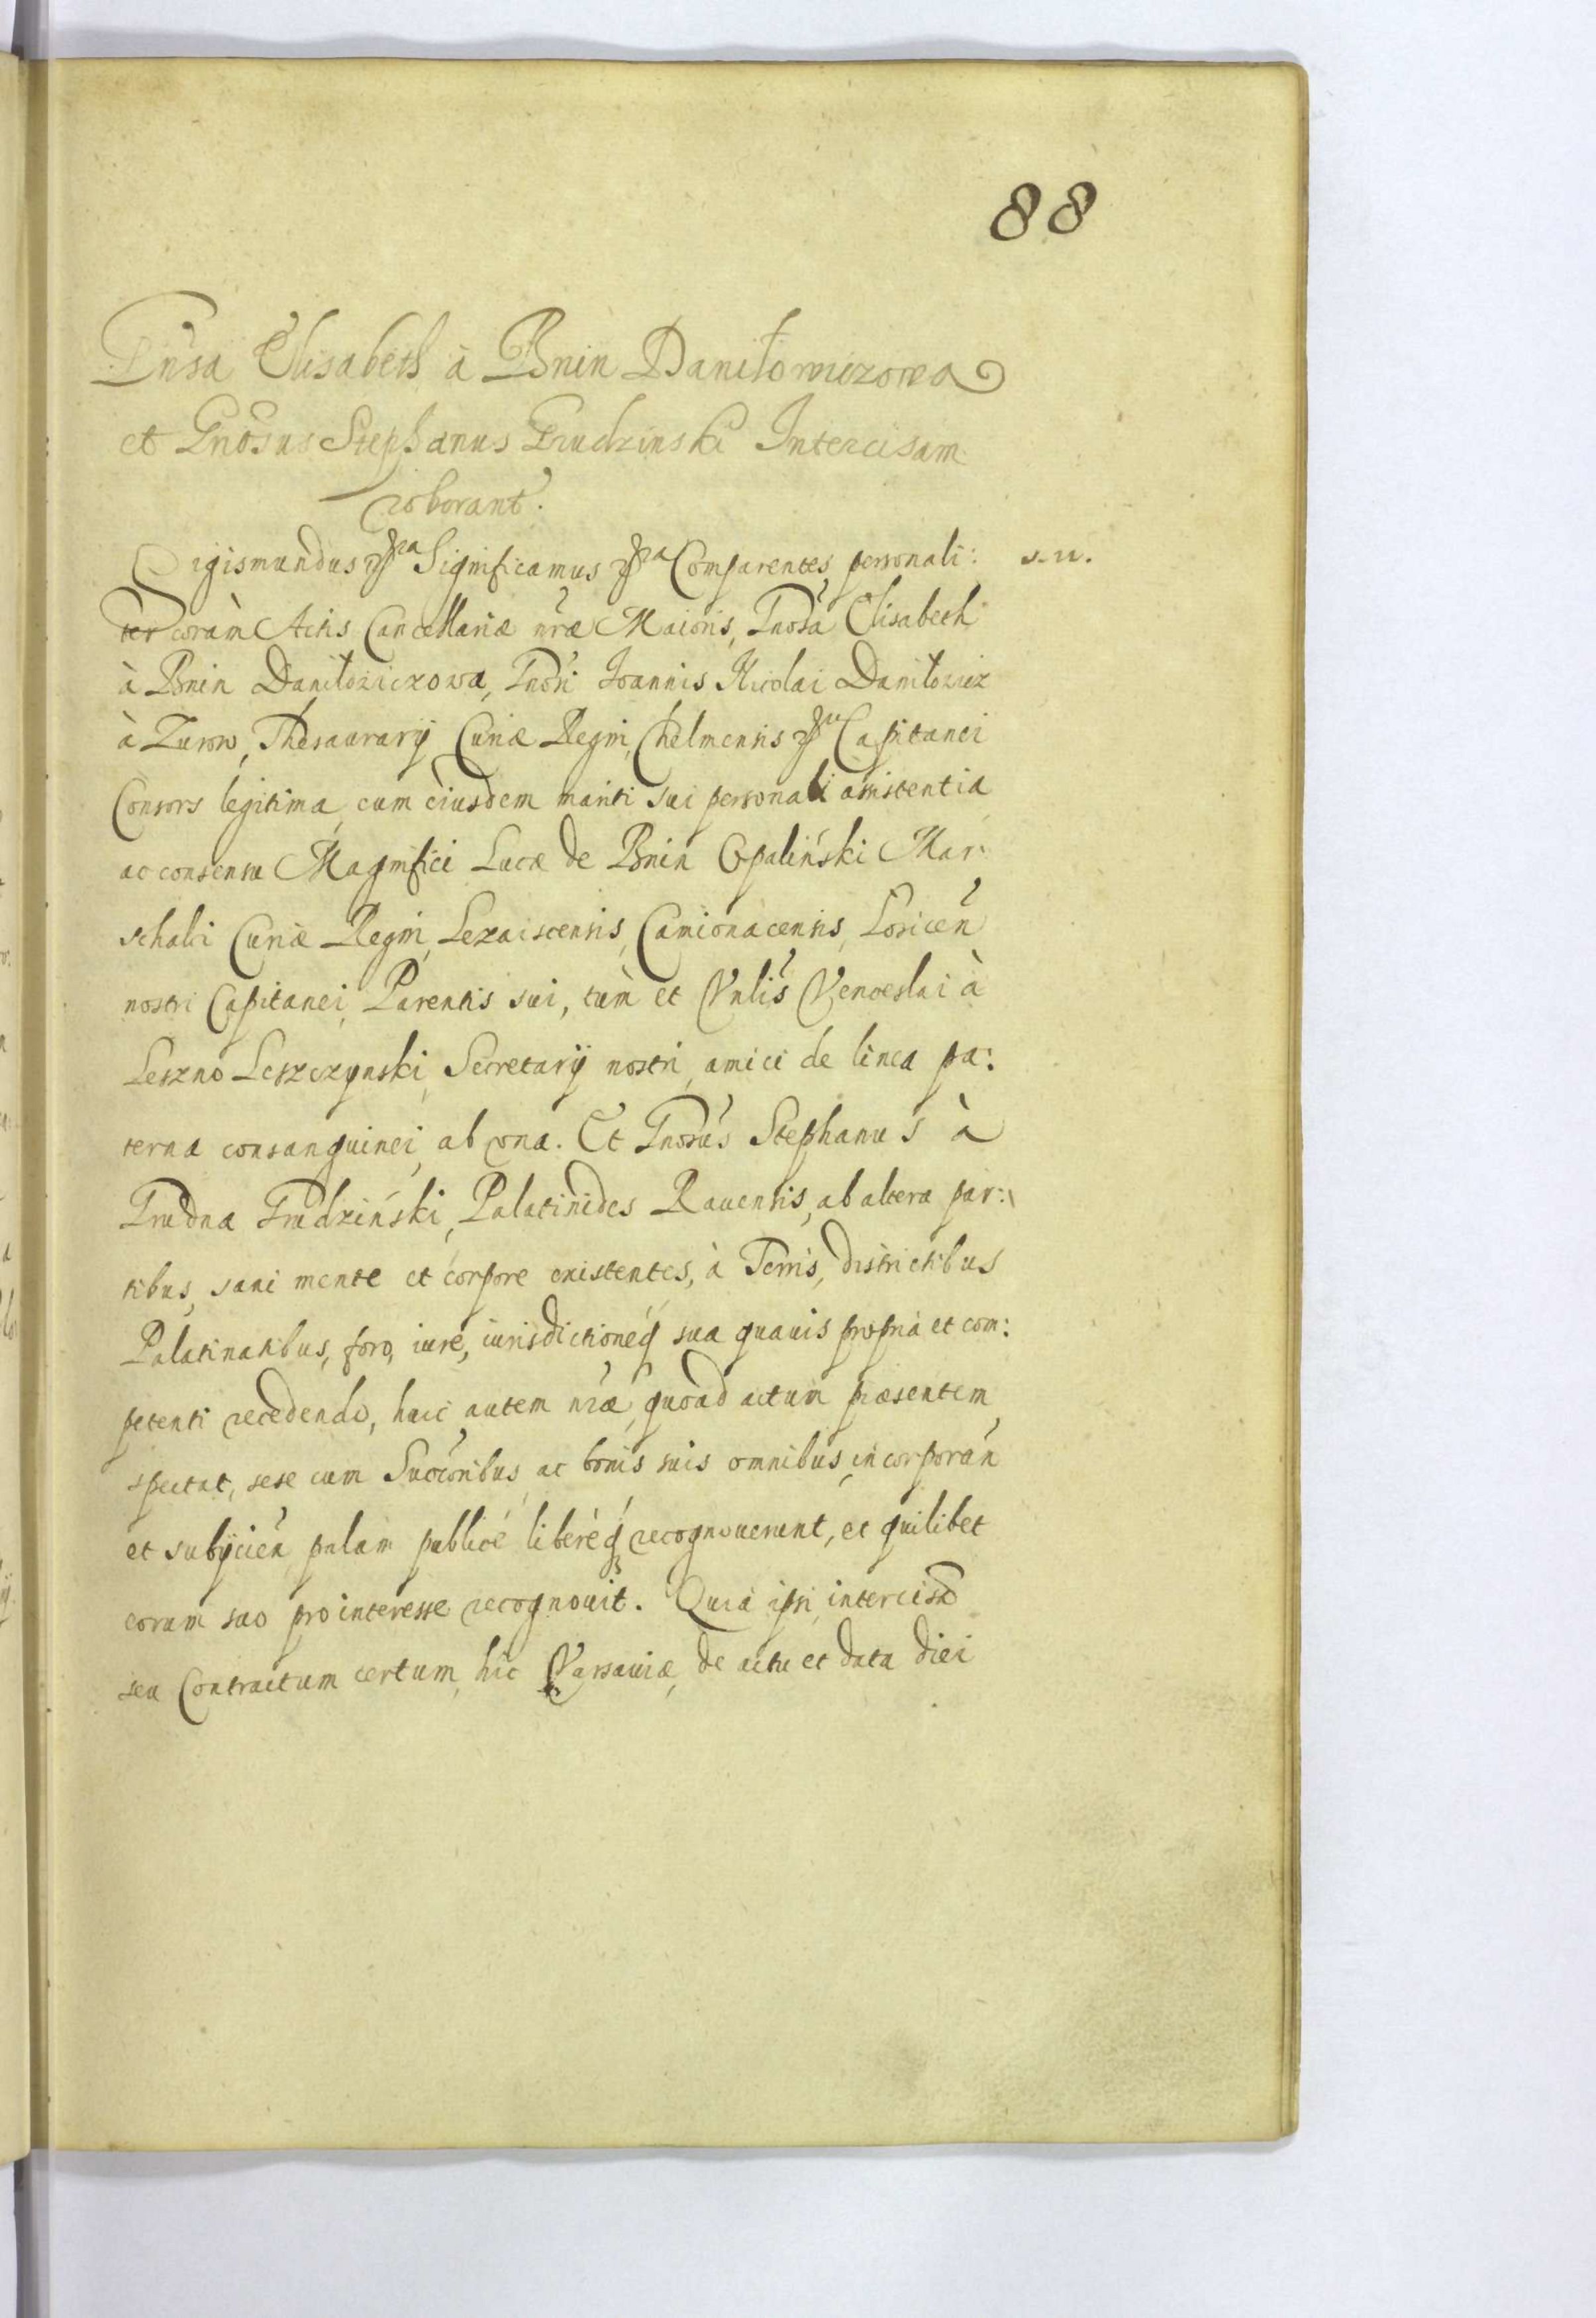 88
Gnsa Elisabeth à Bnin Daniłowiczowa
et Gnosus Stephanus Grudzinski Intercisam
roborant.
Sigismundus &ra Significamus &ra Comparentes personali: s. n.
ter coràm Actis Cancellariæ nræ Maioris, Gnosa Elisabeth
à Bnin Daniłowiczowa, Gnosi Ioannis Nicolai Daniłowicz
à Zurow, Thesaurarÿ Curiæ Regni, Chelmensis Capitanei
Consors legitima, cum eiusdem mariti sui personali assistentia
ac consensu Magnifici Lucæ de Bnin Opaliński Mar:
schalci Curiæ Regni, Lezaiscensis, Camionacensis, Losicen
nostri Capitanei, Parentis sui, tùm et Gnlis Venceslai à
Leszno Leszczynski, Secretarÿ nostri, amici de linea pa:
terna consanguinei, ab vna. Et Gnosus Stephanus à
Grudna Grudziński, Palatinides Rauensis, ab altera par:
tibus, sani mente et corpore existentes, à Terris, districtibus
Palatinatibus, foro, iure, iurisdictioneq sua quauis propria et com:
petenti recedendo, huic autem nræ, quoad actum præsentem
spectat, sese cum Succoribus ac bonis suis omnibus incorporan
et subÿcien palam publicè liberèq recognouerunt, et quilibet
eorum suo pro interesse recognouit. Quia ipsi intercisã
seu Contractum certum, hic Varsauiæ, de actu et data diei